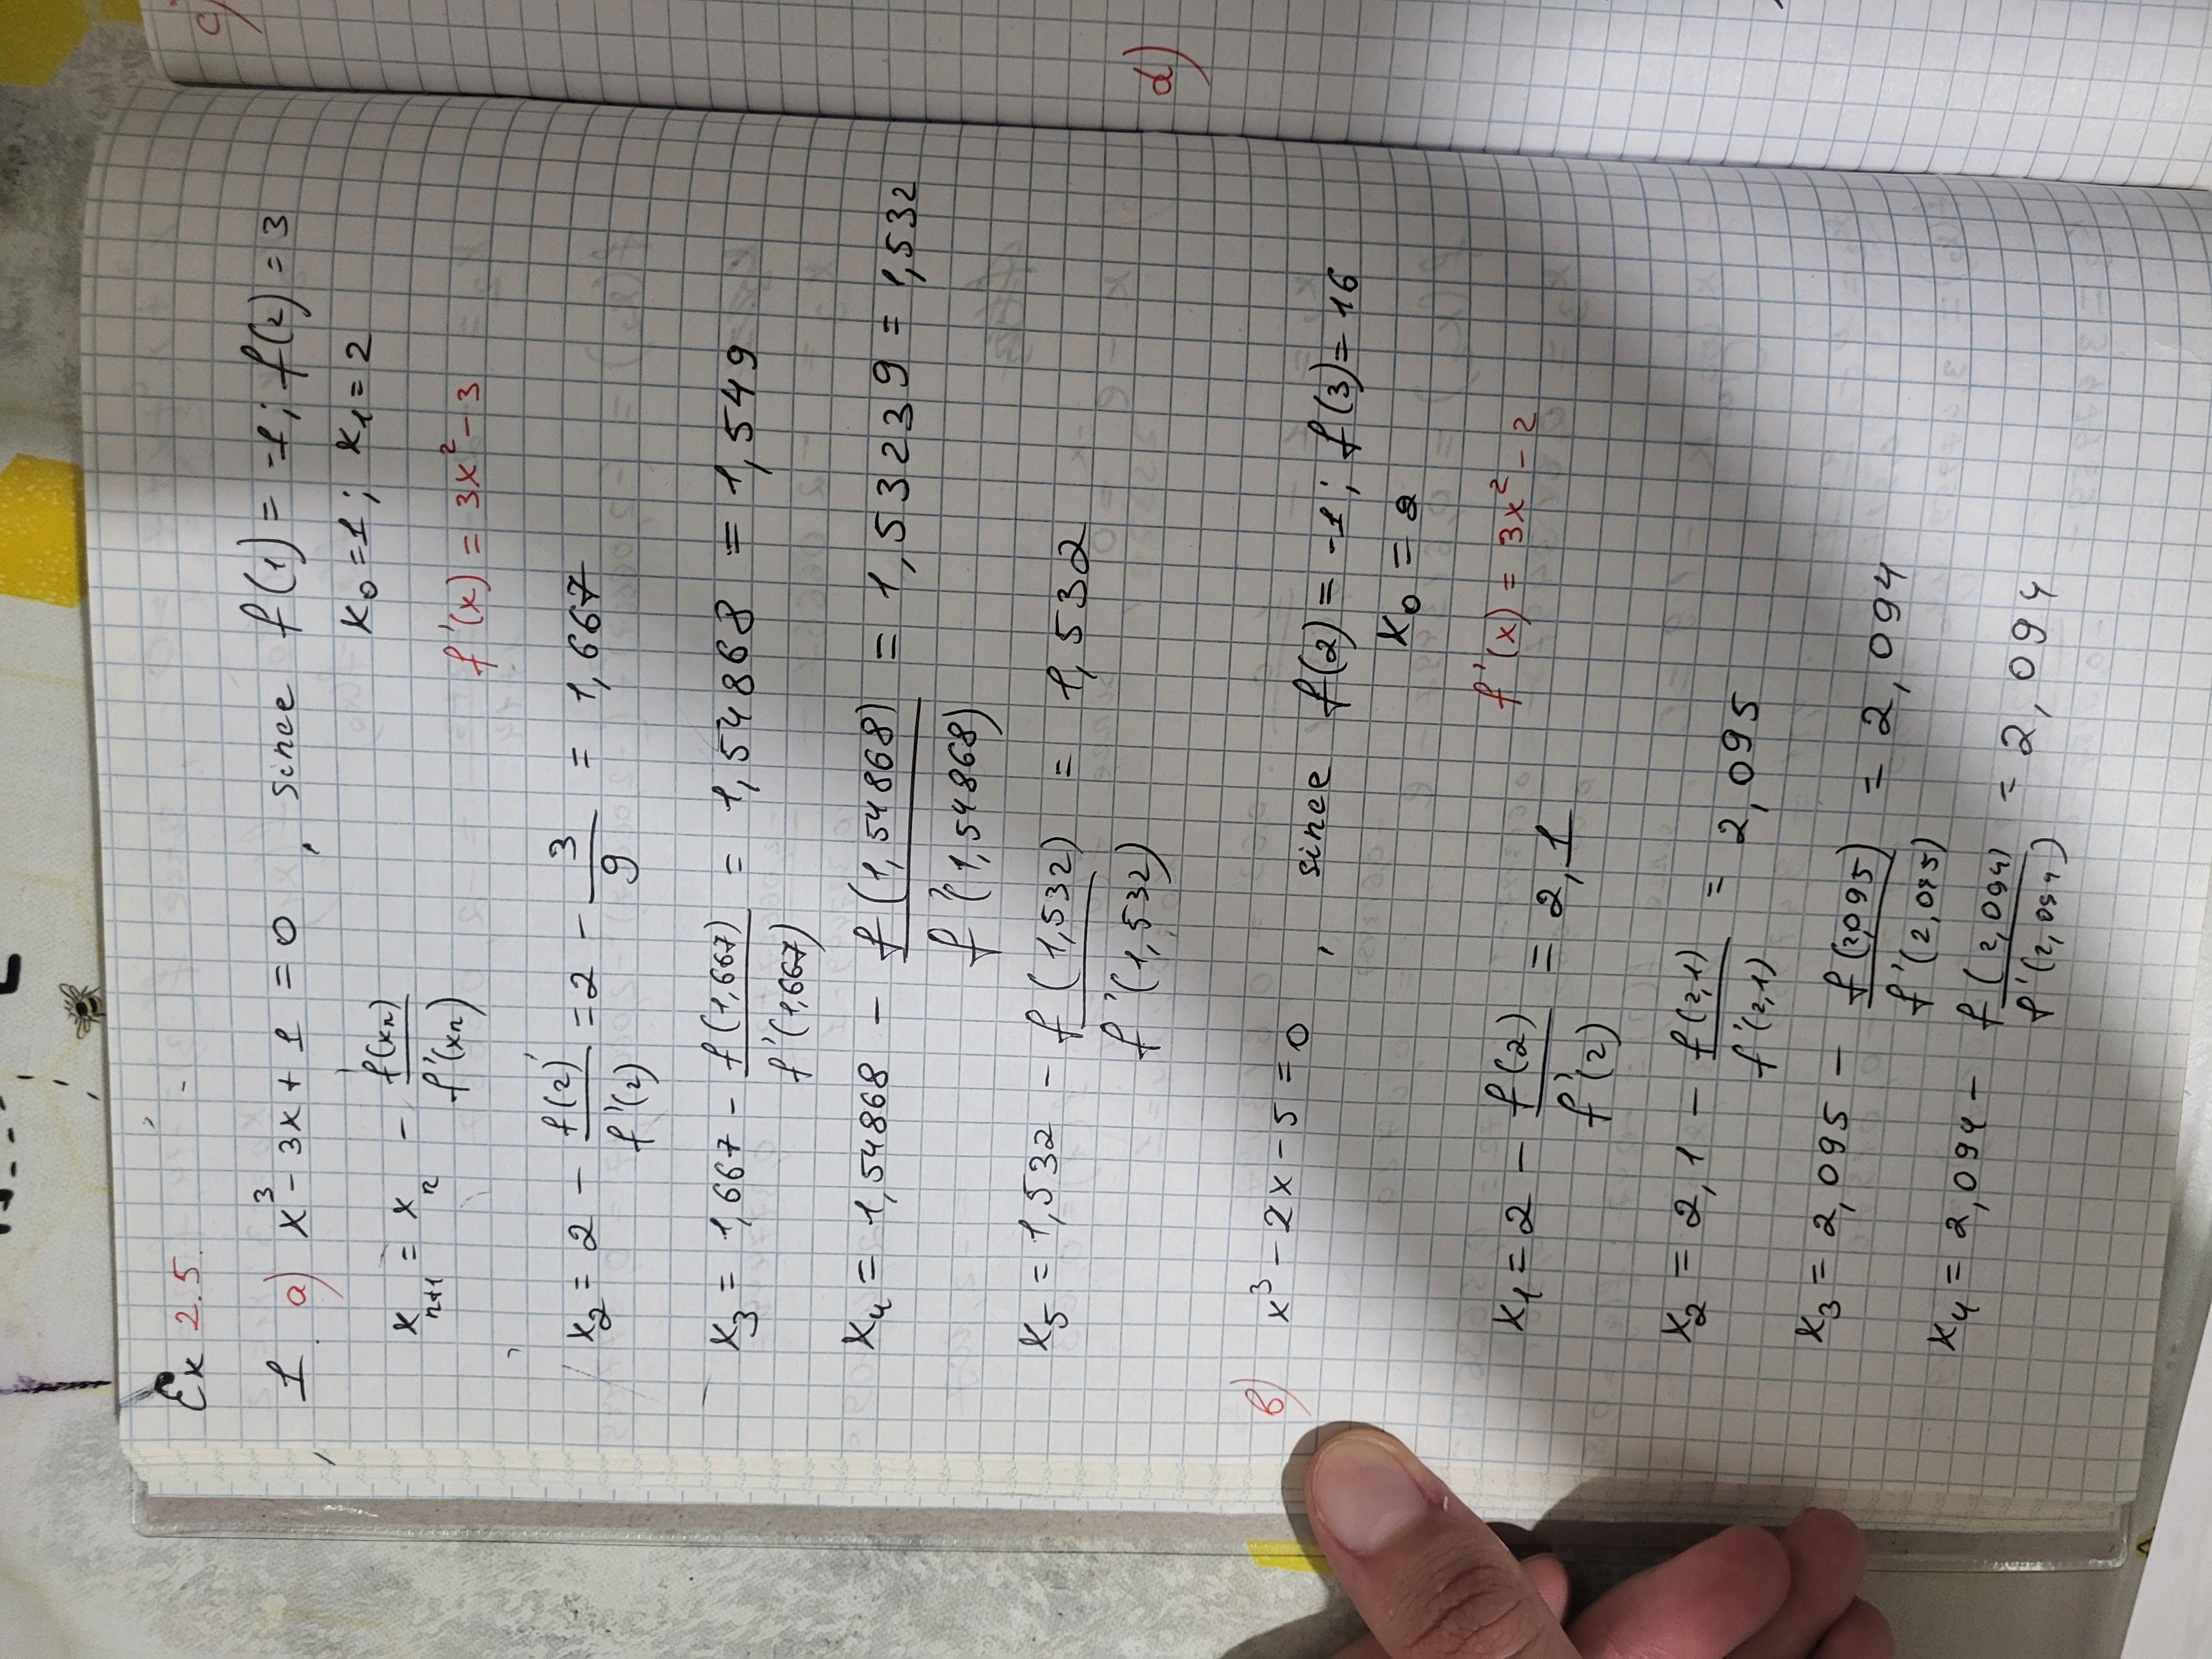 Ex 2.5.
1. a) x³ - 3x + 1 = 0 , since f(1) = -1; f(2) = 3
x₀ = 1; x₁ = 2
xₙ₊₁ = xₙ - f(xₙ)/f'(xₙ)
f'(x) = 3x² - 3
x₂ = 2 - f(2)/f'(2) = 2 - 3/9 = 1,667
x₃ = 1,667 - f(1,667)/f'(1,667) = 1,54868 = 1,549
x₄ = 1,54868 - f(1,54868)/f'(1,54868) = 1,53239 = 1,532
x₅ = 1,532 - f(1,532)/f'(1,532) = 1,532
в) x³ - 2x - 5 = 0 , since f(2) = -1; f(3) = 16
x₀ = 2
f'(x) = 3x² - 2
x₁ = 2 - f(2)/f'(2) = 2,1
x₂ = 2,1 - f(2,1)/f'(2,1) = 2,095
x₃ = 2,095 - f(2,095)/f'(2,095) = 2,094
x₄ = 2,094 - f(2,094)/f'(2,094) = 2,094
c)
d)